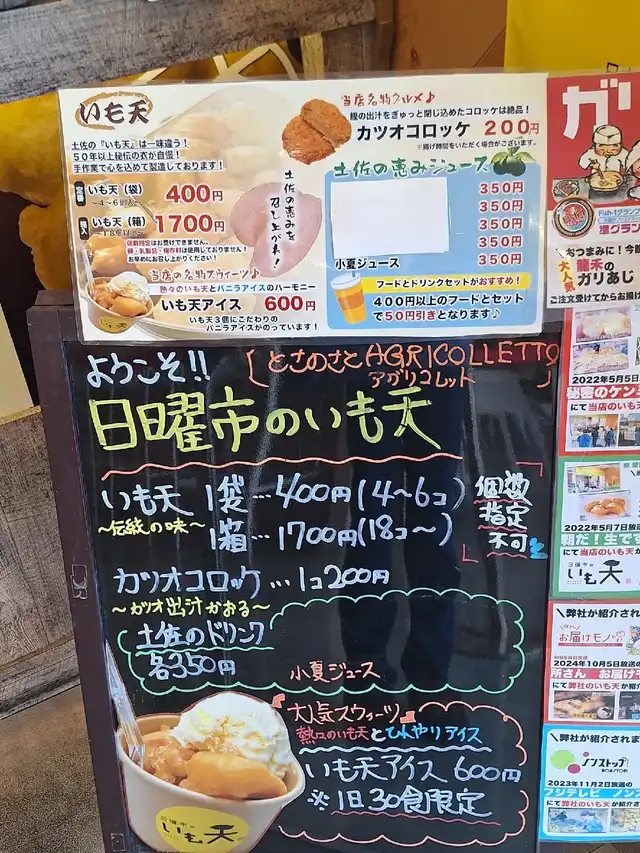 いも天
土佐の『いも天』は一味違う!
50年以上秘伝の衣が自慢!
手作業で心を込めて製造しております!
定番 いも天(袋) 400円
~4~6個入~
いも天(箱) 1700円
~18個~
個数指定はお受けできません。
卵・乳製品・保存料は使用しておりません!
お早めにお召し上がりください!
土佐の恵みを
召し上がれ!
当店の名物スウィーツ♪
熱々のいも天とバニラアイスのハーモニー
いも天アイス 600円
いも天3個にこだわりの
バニラアイスがのっています!
当店名物グルメ♪
鰹の出汁をぎゅっと閉じ込めたコロッケは絶品!
カツオコロッケ 200円
※揚げ時間をいただく場合がございます。
土佐の恵みジュース
350円
350円
350円
350円
小夏ジュース 350円
フードとドリンクセットがおすすめ!
400円以上のフードとセット
で50円引きとなります♪
ようこそ!!
[とさのさとAGRICOLLETTO
アグリコレット]
日曜市のいも天
いも天 1袋…400円(4~6コ)
~伝統の味~
1箱…1700円(18コ~)
個数
指定
不可
カツオコロッケ…1コ200円
~カツオ出汁かおる~
土佐のドリンク
各350円
小夏ジュース
大人気スウィーツ
熱々のいも天とひんやりアイス
いも天アイス 600円
※1日30食限定
日曜市の
いも天
ガリ
Fish-1グラン
準グラン
おつまみに!今
大人気
龍禾の
ガリあじ
ご注文受けてからお揚げ
2022年5月5日
秘密のケン
にて当店のいも天
2022年5月7日放送
朝だ!生です
にて当店のいも天が紹
日曜市の
いも天
\弊社が紹介され
お届けモノ
2024年10月5日放送
所さん お届け
にて弊社のいも天が紹
\弊社が紹介されま
ノンストップ
NON STOP!
2023年11月2日放送の
フジテレビ ノン
にて弊社のいも天が紹介